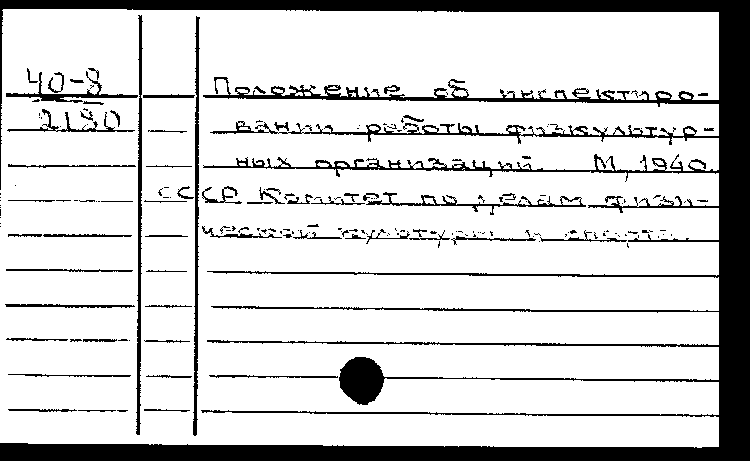 40-8
2180
Положение об инспектиро-
вании работы физкультур-
ных организаций. М, 1940.
СССР Комитет по делам физи-
ческой культуры и спорта.